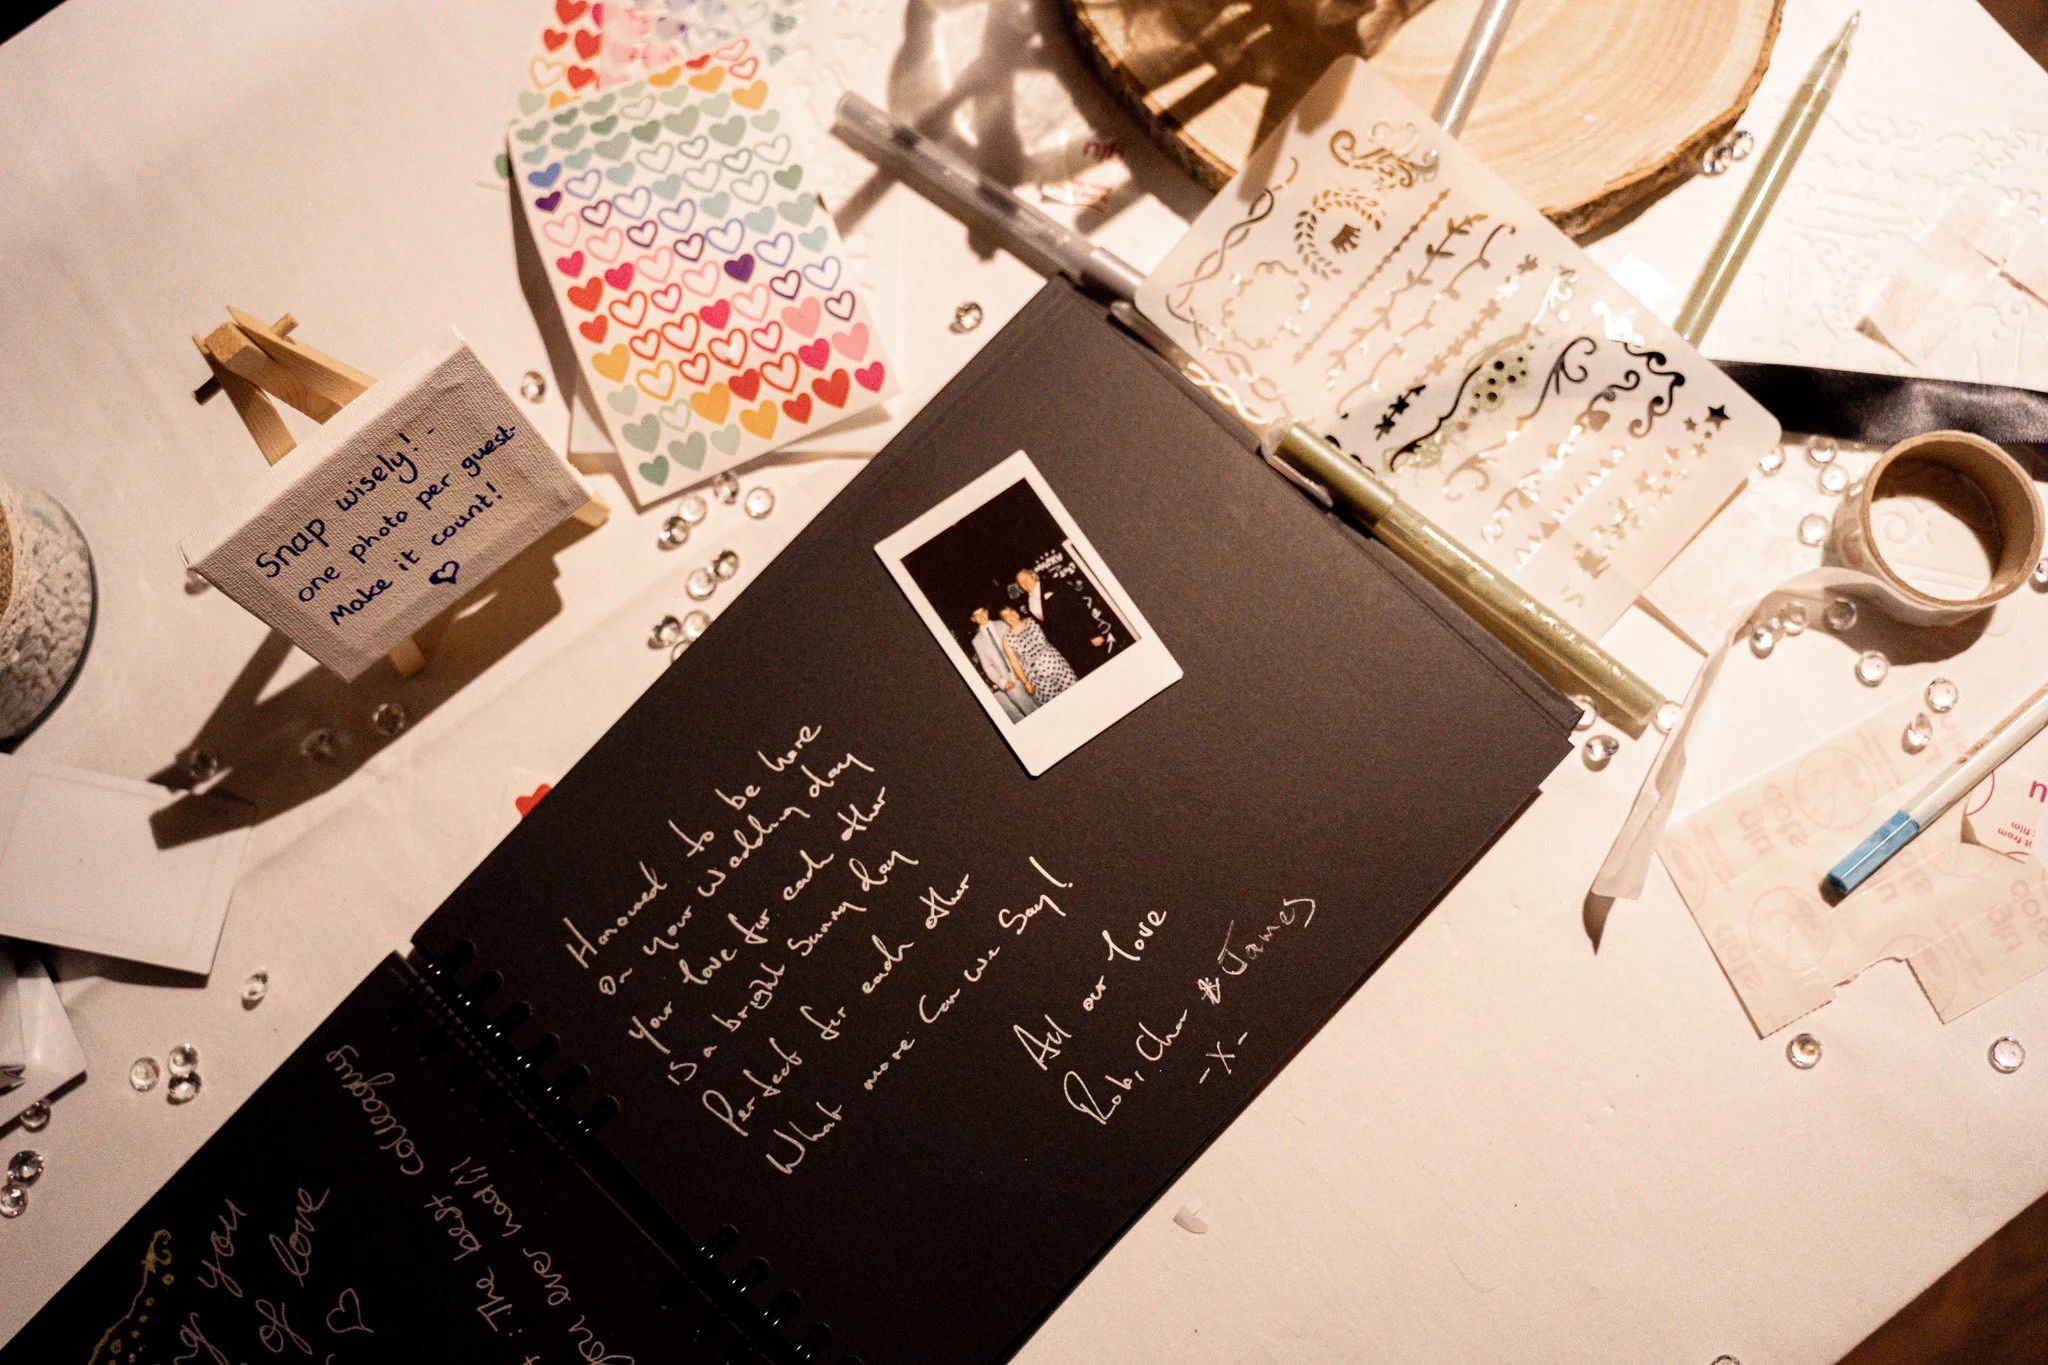 Snap wisely! -
one photo per guest -
Make it count!
Honoured to be here
On your wedding day
your love for each other
is a bright Sunny day
Perfect for each other
What more Can we Say!
All our love
Rob, & James
- X -
The best colleaguy
you ever had!!
you
of love